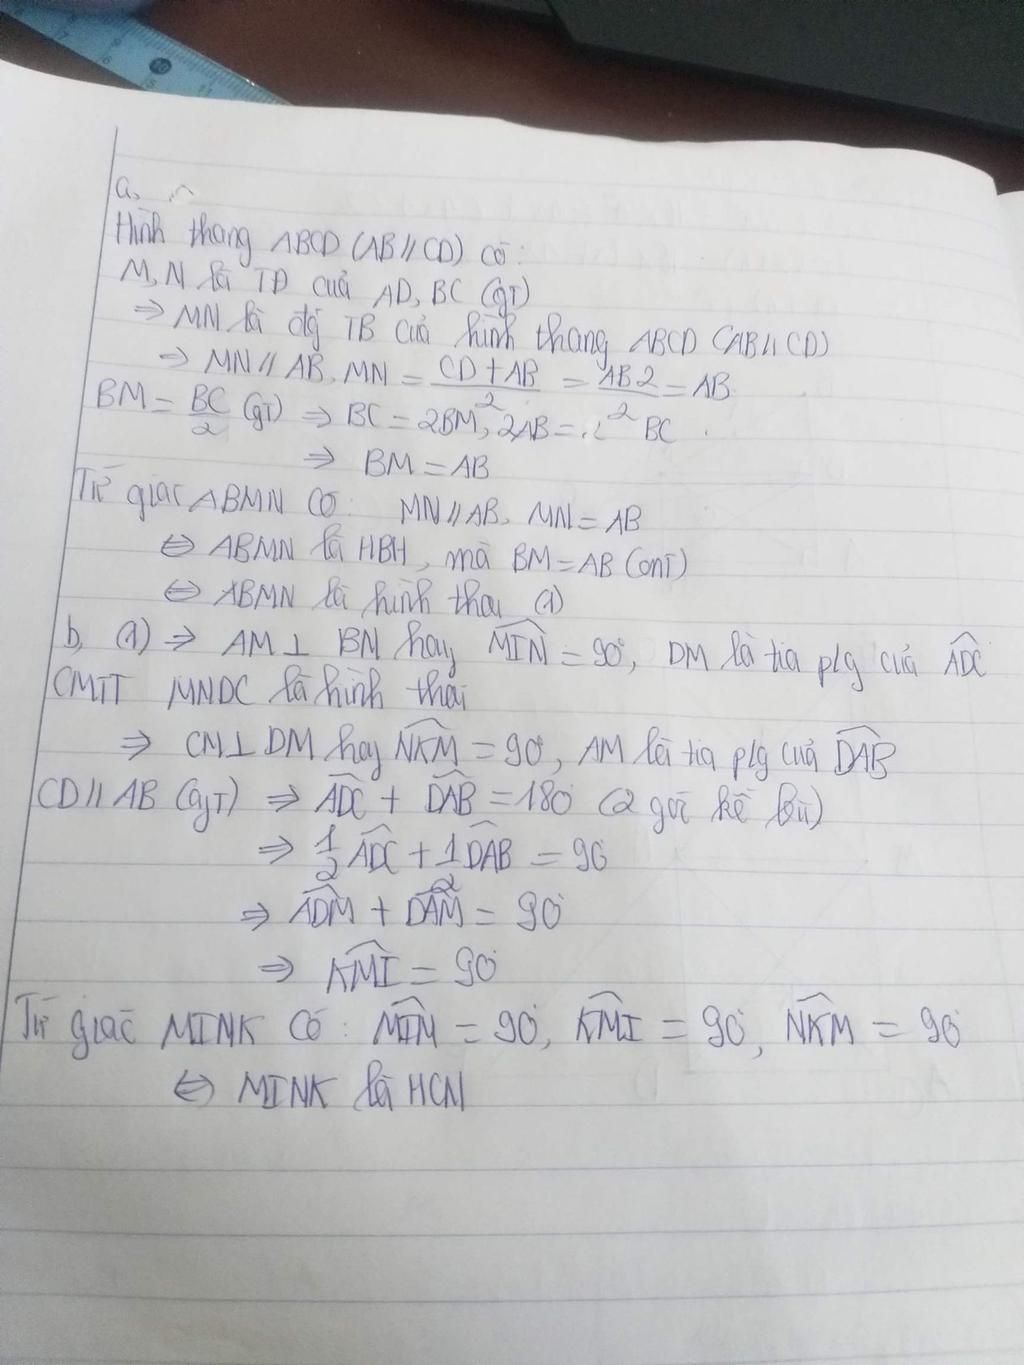 a,
Hình thang ABCD (AB // CD) có:
M, N là TĐ của AD, BC (gT)
⇒ MN là đg TB của hình thang ABCD (AB // CD)
⇒ MN // AB, MN = CD + AB / 2 = AB2 / 2 = AB
BM = BC/2 (gT) ⇒ BC = 2BM, 2AB = BC
⇒ BM = AB
Tứ giác ABMN có: MN // AB, MN = AB
⇔ ABMN là HBH, mà BM = AB (cmT)
⇔ ABMN là hình thoi (1)
b, (1) ⇒ AM ⊥ BN hay MIN = 90°, DM là tia p/g của ADC
CMTT MNDC là hình thoi
⇒ CN ⊥ DM hay NKM = 90°, AM là tia p/g của DAB
CD // AB (gT) ⇒ ADC + DAB = 180° (2 góc kề bù)
⇒ 1/2 ADC + 1/2 DAB = 90
⇒ ADM + DAM = 90°
⇒ KMI = 90°
Tứ giác MINK có: MIN = 90°, KMI = 90°, NKM = 90°
⇔ MINK là HCN